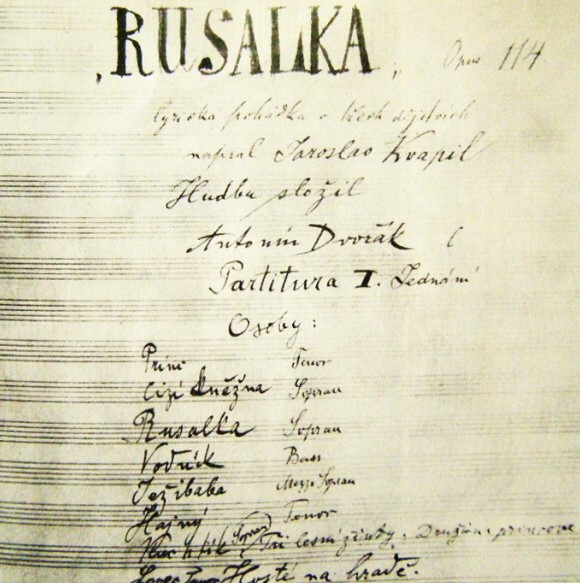 „RUSALKA„ Opus 114
lyrická pohádka o třech dějstvích
napsal Jaroslav Kvapil
Hudbu složil
Antonín Dvořák
Partitura I. Jednání
Osoby:
Princ Tenor
Cizí kněžna Sopran
Rusalka Sopran
Vodník Bass
Ježibaba Mezzo Sopran
Hajný Tenor
Kuchtík Sopran Tři lesní žínky. Družina princova
Hosté na hradě.